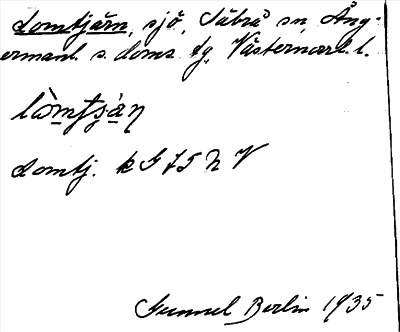 Lomtjärn, sjö, Tåbrå sn, Ång-
ermanl. s. doms. fg, Västernorrl. l.
lòmtʂàn
Lomtj. k G 75 N V
Gunnel Berlin 1935